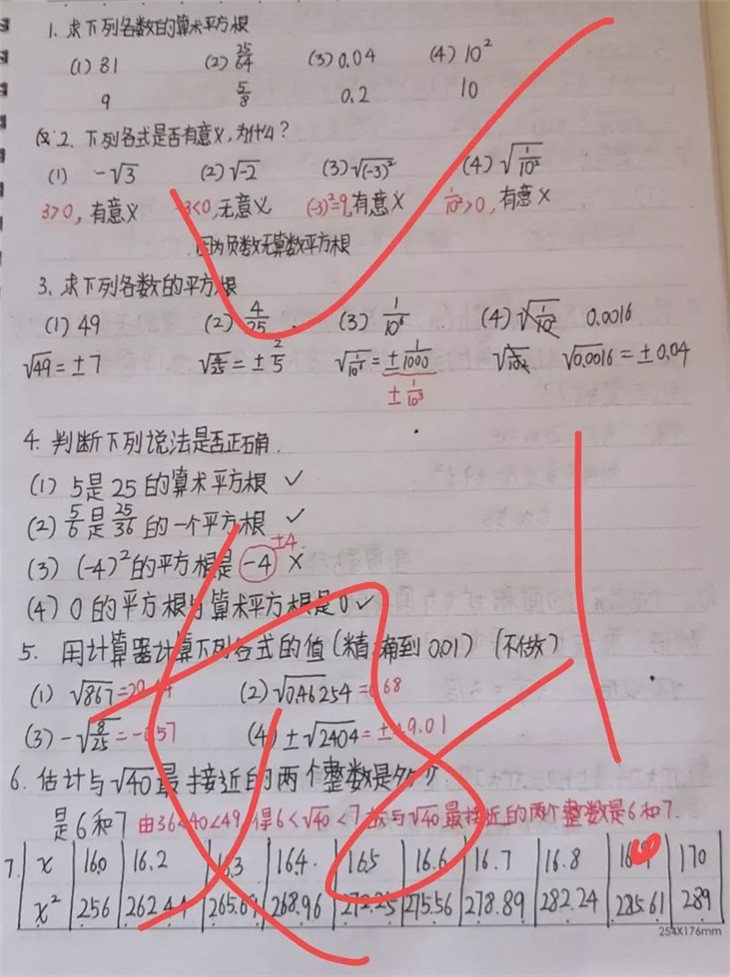 1. 求下列各数的算术平方根
(1) 81 (2) 25/64 (3) 0.04 (4) 10²
9 5/8 0.2 10
2、下列各式是否有意义,为什么?
(1) -√3 (2) √-2 (3) √(-3)² (4) √1/10²
3>0, 有意义 -3<0, 无意义 (-3)²=9,有意义 1/10²>0, 有意义
因为负数无算数平方根
3、求下列各数的平方根
(1) 49 (2) 4/25 (3) 1/10⁶ (4) 0.0016
√49=±7 √4/25=±2/5 =±1/1000 √0.0016=±0.04
±1/10³
4. 判断下列说法是否正确.
(1) 5是25的算术平方根 ✓
(2) 5/6是25/36的一个平方根 ✓
±4
(3) (-4)²的平方根是 -4 ×
(4) 0的平方根与算术平方根是0 ✓
5. 用计算器计算下列各式的值(精确到0.01) (不做)
(1) √867 (2) √0.46254=0.68
(3) -√8/25=-0.57 (4) ±√2404
6. 估计与√40最接近的两个整数是
是6和7 由36<40<49,得6<√40<7,故与√40最接近的两个整数是6和7.
7. x 16.0 16.2 16.3 16.4 16.5 16.6 16.7 16.8 170
x² 256 262.44 265.69 268.96 272.25 275.56 278.89 282.24 285.61 289
254X176mm